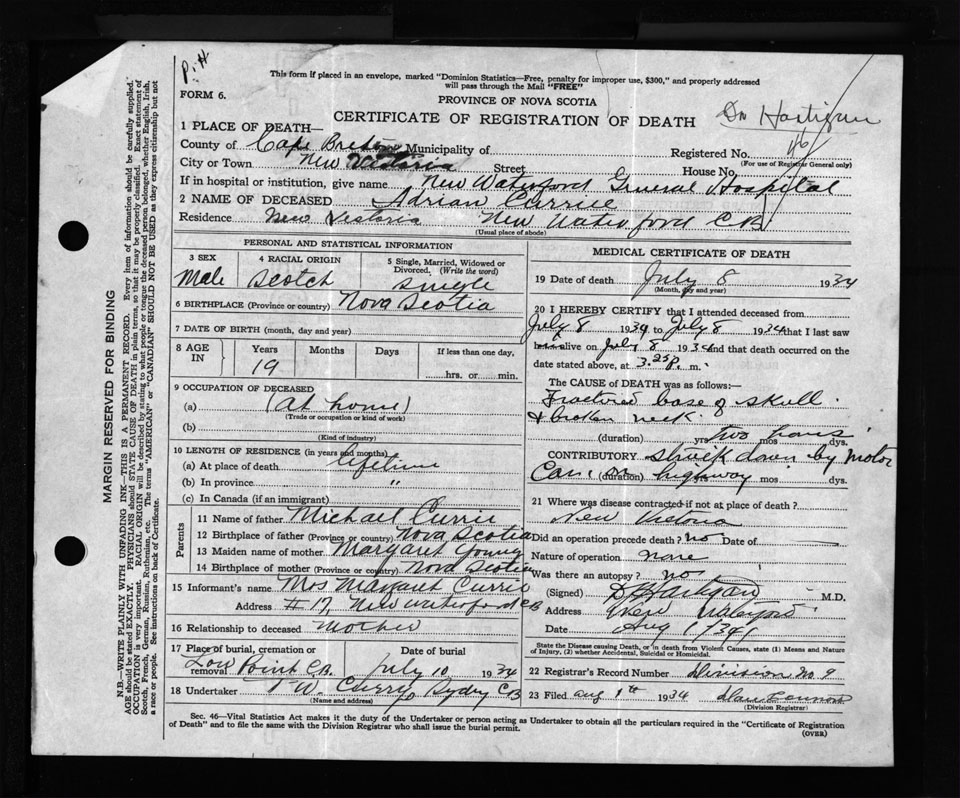 P.H.
This form if placed in an envelope, marked "Dominion Statistics—Free, penalty for improper use, $300," and properly addressed
will pass through the Mail "FREE"
FORM 6.
PROVINCE OF NOVA SCOTIA
CERTIFICATE OF REGISTRATION OF DEATH
Dr Hartigan
1 PLACE OF DEATH—
County of Cape Breton Municipality of
Registered No. 116
(For use of Registrar General only)
City or Town New Victoria Street House No.
If in hospital or institution, give name New Waterford General Hospital
2 NAME OF DECEASED Adrian Currie
Residence New Victoria New Waterford C B
(Usual place of abode)
PERSONAL AND STATISTICAL INFORMATION
3 SEX
Male
4 RACIAL ORIGIN
Scotch
5 Single, Married, Widowed or
Divorced, (Write the word)
Single
6 BIRTHPLACE (Province or country) Nova Scotia
7 DATE OF BIRTH (month, day and year)
8 AGE IN
Years Months Days If less than one day,
19 hrs. or min.
9 OCCUPATION OF DECEASED
(a) (At home)
(Trade or occupation or kind of work)
(b)
(Kind of industry)
10 LENGTH OF RESIDENCE (in years and months)
(a) At place of death lifetime
(b) In province "
(c) In Canada (if an immigrant)
Parents
11 Name of father Michael Currie
12 Birthplace of father (Province or country) Nova Scotia
13 Maiden name of mother Margaret Young
14 Birthplace of mother (Province or country) Nova Scotia
15 Informant's name Mrs Margaret Currie
Address # 17, New Waterford CB
16 Relationship to deceased Mother
17 Place of burial, cremation or removal Date of burial
Low Point C.B. July 10 1934
18 Undertaker T W. Curry, Sydney CB
(Name and address)
MEDICAL CERTIFICATE OF DEATH
19 Date of death July 8 1934
(Month, day and year)
20 I HEREBY CERTIFY that I attended deceased from
July 8 1934 to July 8 1934 that I last saw
him alive on July 8 1934 and that death occurred on the
date stated above, at 3.25 P. m.
The CAUSE of DEATH was as follows:
Fractured base of skull
& broken neck.
(duration) yrs. two hours mos. dys.
CONTRIBUTORY struck down by motor
Car on (duration) highway mos. dys.
21 Where was disease contracted if not at place of death?
New Victoria
Did an operation precede death? no Date of
Nature of operation none
Was there an autopsy? no
(Signed) M.D.
Address New Waterford
Date Aug 1/34
State the Disease causing Death, or in death from Violent Causes, state (1) Means and Nature
of Injury, (2) whether Accidental, Suicidal or Homicidal.
22 Registrar's Record Number Division No. 9
23 Filed Aug 1st 1934
(Division Registrar)
Sec. 46—Vital Statistics Act makes it the duty of the Undertaker or person acting as Undertaker to obtain all the particulars required in the "Certificate of Registration
of Death" and to file the same with the Division Registrar who shall issue the burial permit.
(OVER)
MARGIN RESERVED FOR BINDING
N.B.—WRITE PLAINLY WITH UNFADING INK—THIS IS A PERMANENT RECORD. Every item of information should be carefully supplied.
AGE should be stated EXACTLY. PHYSICIANS should STATE CAUSE OF DEATH in plain terms, so that it may be properly classified. Exact statement of
OCCUPATION is very important. RACIAL ORIGIN will be described by stating to what people or tongue the deceased person belonged, whether English, Irish,
Scotch, French, German, Russian, Ruthenian, etc. The terms "AMERICAN" or "CANADIAN" SHOULD NOT BE USED as they express citizenship but not
a race or people. See instructions on back of Certificate.